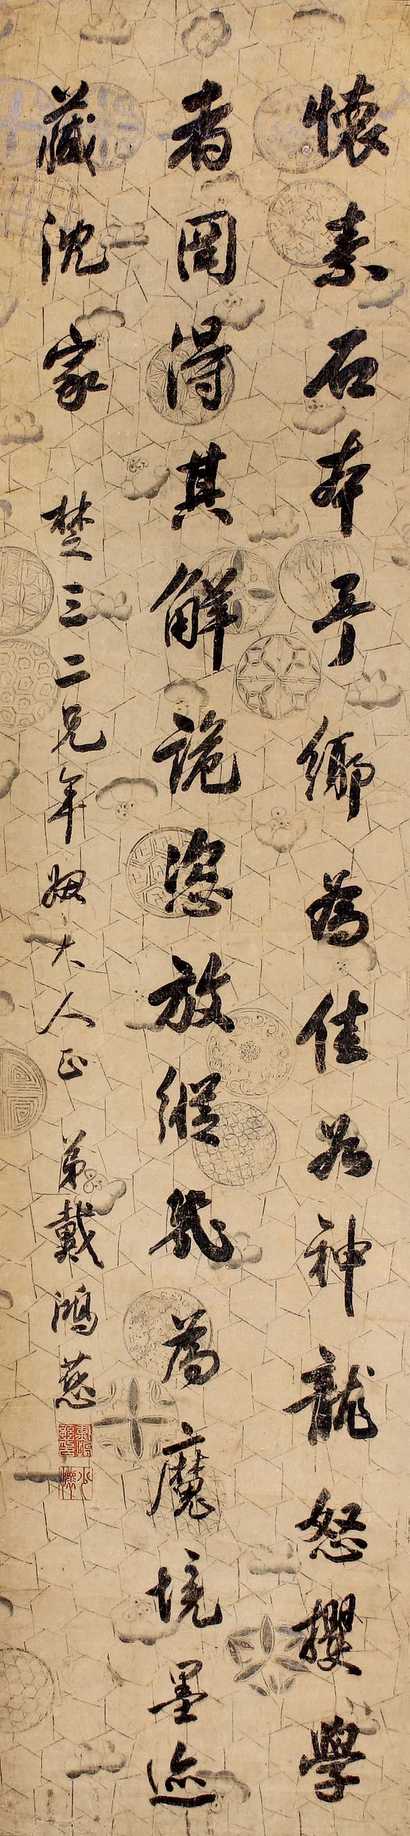 懷素石本予鄉為佳如神龍怒攫學
者罔得其解詭恣放縱或為魔境墨迹
藏沈家 楚三二兄年姻大人正 弟戴鴻慈